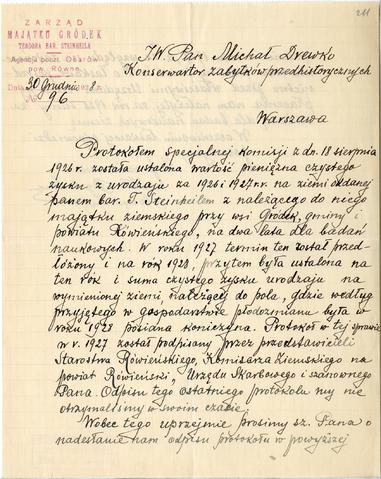 211
ZARZĄD
MAJĄTKU GRÓDEK
TEODORA BAR. STEINHEILA
Agencja poczt. Obarów
pow. Równe
Dnia 30 Grudnia 1928 r.
№ 96
J.W. Pan Michał Drewko
Konserwator zabytków przedhistorycznych
Warszawa
Protokołem specjalnej komisji z dn. 18 sierpnia
1926 r. została ustalona wartość pieniężna czystego
zysku z urodzaju za 1926 i 1927 r.r. na ziemi oddanej
panem bar. T. Steinheilem z należącego do niego
majątku ziemskiego przy wsi Gródek, gminy i
powiatu Rówieńskiego, na dwa lata dla badań
naukowych. W roku 1927 termin ten został przed-
łóżony i na rok 1928, przytem była ustalona na
ten rok i suma czystego zysku urodzaju na
wymienionej ziemi, należącej do pola, gdzie według
przyjętego w gospodarstwie płodozmianu była w
roku 1928 posiana koniczyna. Protokół w tej sprawie
w r. 1927 został podpisany przez przedstawicieli
Starostwa Rówieńskiego, Komisarza Ziemskiego na
powiat Rówieński, Urzędu Skarbowego i szanownego
Pana. Odpisu tego ostatniego protokułu my nie
otrzymaliśmy w swoim czasie.
Wobec tego uprzejmie prosimy sz. Pana o
nadesłanie nam odpisu protokółu w powyższej